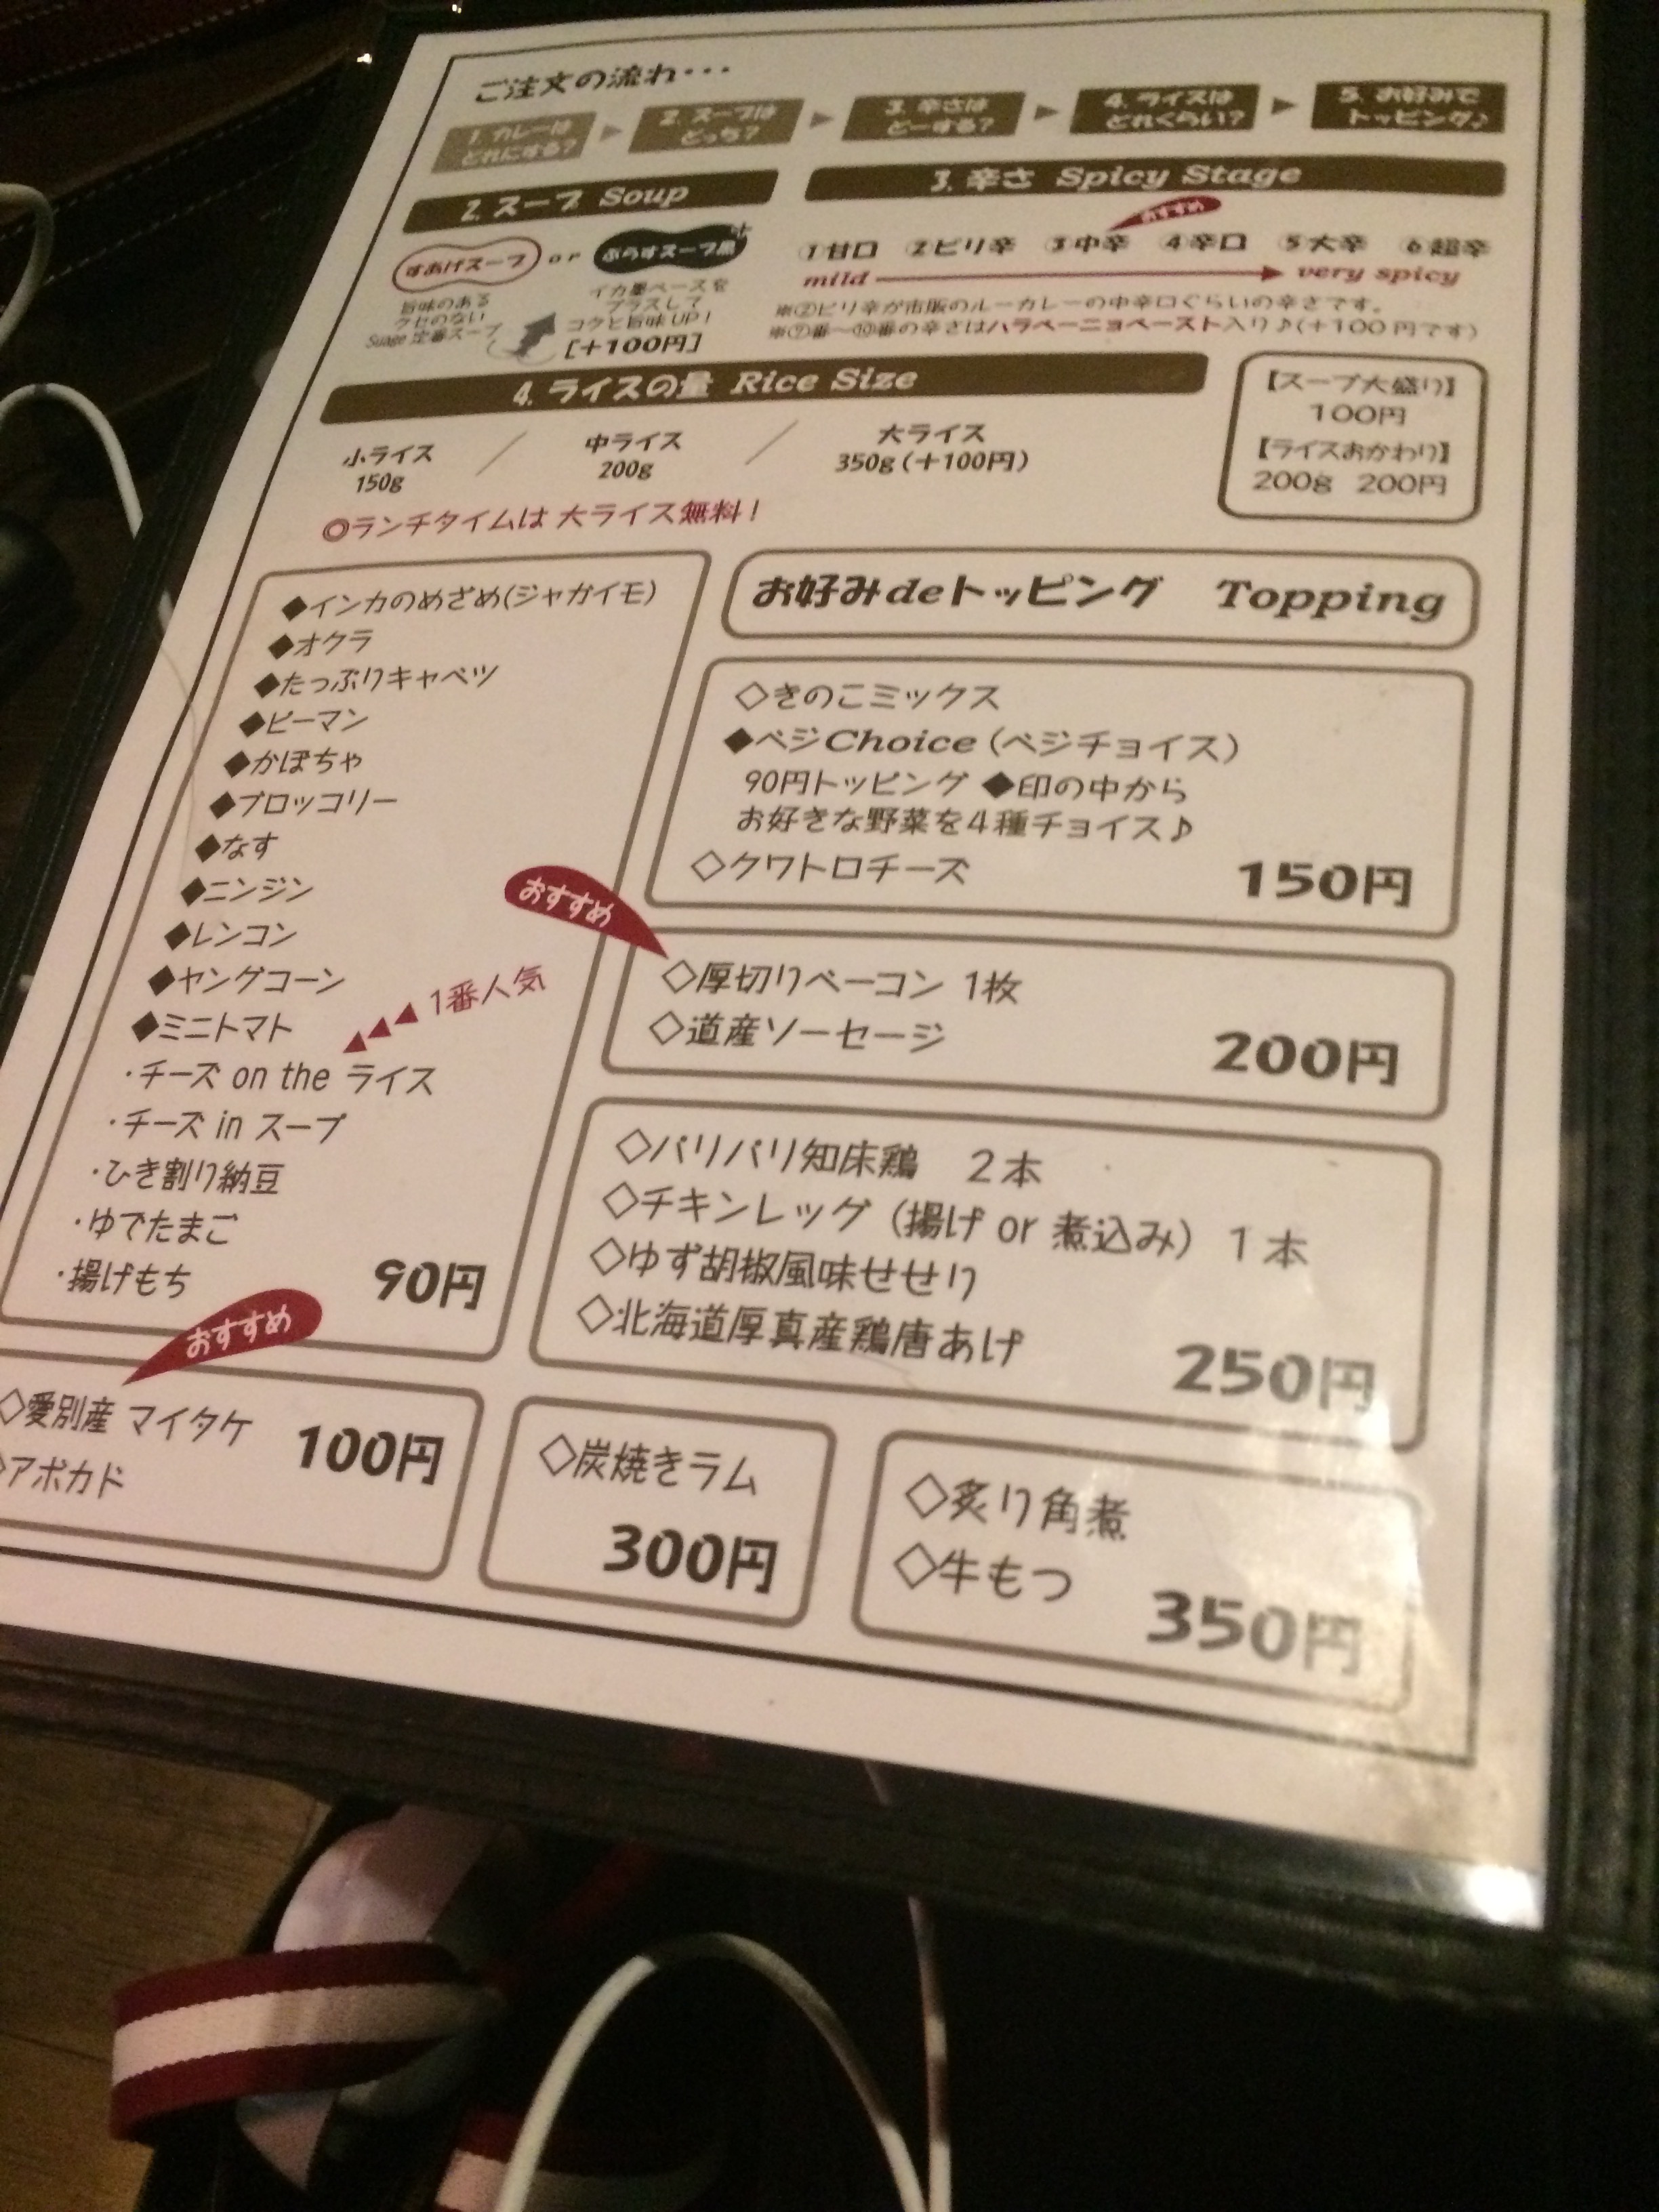 ご注文の流れ・・・
1. カレーは
どれにする?
2. スープは
どっち?
3. 辛さは
どーする?
4. ライスは
どれくらい?
5. お好みで
トッピング♪
2. スープ Soup
すあげスープ or ぷらすスープ黒+
旨味のある
クセのない
Suage 定番スープ
イカ墨ベースを
プラスして
コクと旨味UP!
[+100円]
3. 辛さ Spicy Stage
おすすめ
①甘口 ②ピリ辛 ③中辛 ④辛口 ⑤大辛 ⑥超辛
mild very spicy
※②ピリ辛が市販のルーカレーの中辛口ぐらいの辛さです。
※⑦番〜⑩番の辛さはハラペーニョペースト入り♪(+100円です)
4. ライスの量 Rice Size
小ライス / 中ライス / 大ライス
150g 200g 350g(+100円)
◎ランチタイムは 大ライス無料!
【スープ大盛り】
100円
【ライスおかわり】
200g 200円
◆インカのめざめ(ジャガイモ)
◆オクラ
◆たっぷりキャベツ
◆ピーマン
◆かぼちゃ
◆ブロッコリー
◆なす
◆ニンジン
◆レンコン
◆ヤングコーン
◆ミニトマト
1番人気
・チーズ on the ライス
・チーズ in スープ
・ひき割り納豆
・ゆでたまご
・揚げもち
90円
おすすめ
◇愛別産 マイタケ
◇アボカド
100円
お好みdeトッピング Topping
◇きのこミックス
◆ベジChoice(ベジチョイス)
90円トッピング ◆印の中から
お好きな野菜を4種チョイス♪
◇クワトロチーズ
150円
おすすめ
◇厚切りベーコン 1枚
◇道産ソーセージ
200円
◇パリパリ知床鶏 2本
◇チキンレッグ(揚げ or 煮込み) 1本
◇ゆず胡椒風味せせり
◇北海道厚真産鶏唐あげ
250円
◇炭焼きラム
300円
◇炙り角煮
◇牛もつ
350円